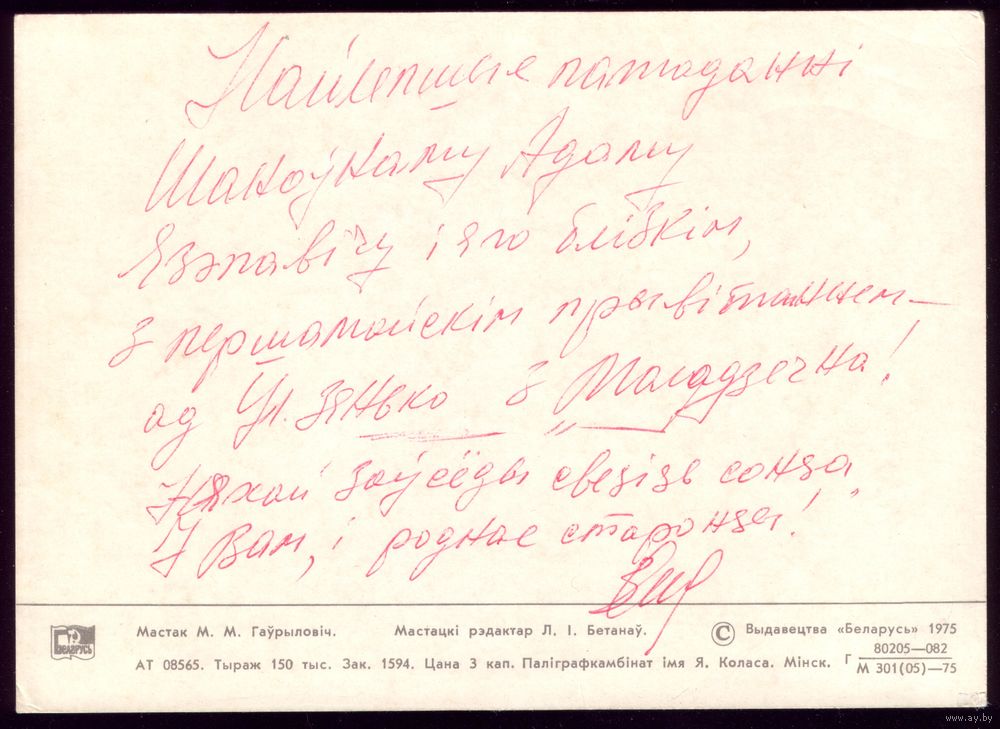 Найлепшые пажаданні
Шаноўнаму Адаму
Язэпавічу і яго блізкім,
З першамайскім прывітаннем —
ад Ул. Зянько з „Маладзечна!
Няхай заўсёды свеціць сонца
І Вам, і роднае старонцы!
БЕЛАРУСЬ
Мастак М. М. Гаўрыловіч. Мастацкі рэдактар Л. І. Бетанаў. © Выдавецтва «Беларусь» 1975
АТ 08565. Тыраж 150 тыс. Зак. 1594. Цана 3 кап. Паліграфкамбінат імя Я. Коласа. Мінск. Г 80205—082
М 301(05)—75
www.ay.by